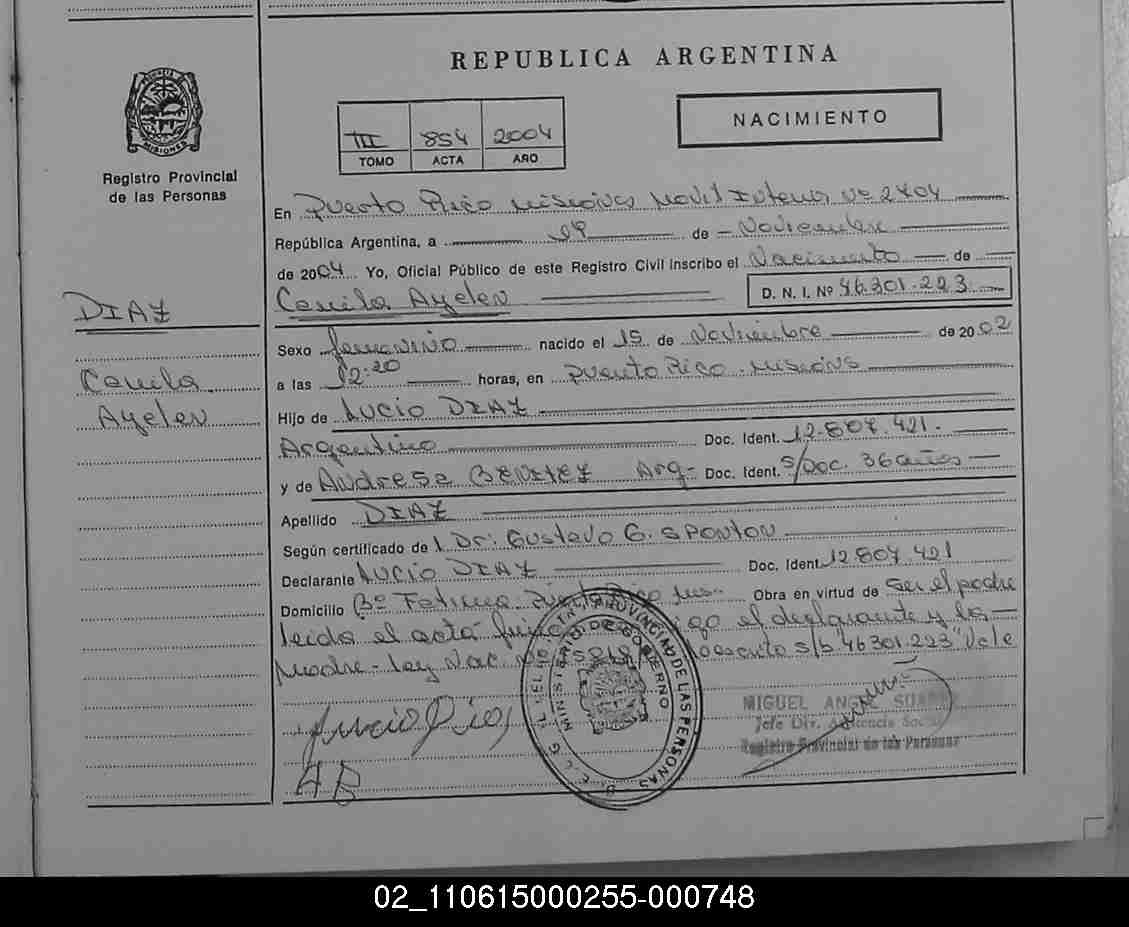 REPUBLICA ARGENTINA
PROVINCIA DE MISIONES
Registro Provincial
de las Personas
III 854 2004
TOMO ACTA AÑO
NACIMIENTO
DIAZ
Camila
Ayelen
En Puerto Rico Misiones Movil Interno Nº 2404
República Argentina, a 09 de Noviembre
de 2004 Yo, Oficial Público de este Registro Civil inscribo el Nacimiento de
Camila Ayelen D. N. I. Nº 46.301.223
Sexo femenino nacido el 15 de Noviembre de 2002
a las 12.20 horas, en Puerto Rico. Misiones
Hijo de Lucio DIAZ
Argentino Doc. Ident. 12.807.421.
y de Andresa BENITEZ Arg- Doc. Ident. s/Doc. 36 años
Apellido DIAZ
Según certificado de Dr: Gustavo G. SPONTON
Declarante Lucio DIAZ Doc. Ident. 12807421
Domicilio Bº Fatima Puerto Rico Mis. Obra en virtud de ser el padre
leida el acta el declarante y la
Madre- Ley Nac. s/b "46.301.223" Vale
Lucio Diaz
AB
REGISTRO PROVINCIAL DE LAS PERSONAS
MINISTERIO DE GOBIERNO
MIGUEL ANGEL SUAREZ
Jefe Div. Asistencia Social
Registro Provincial de las Personas
02_110615000255-000748